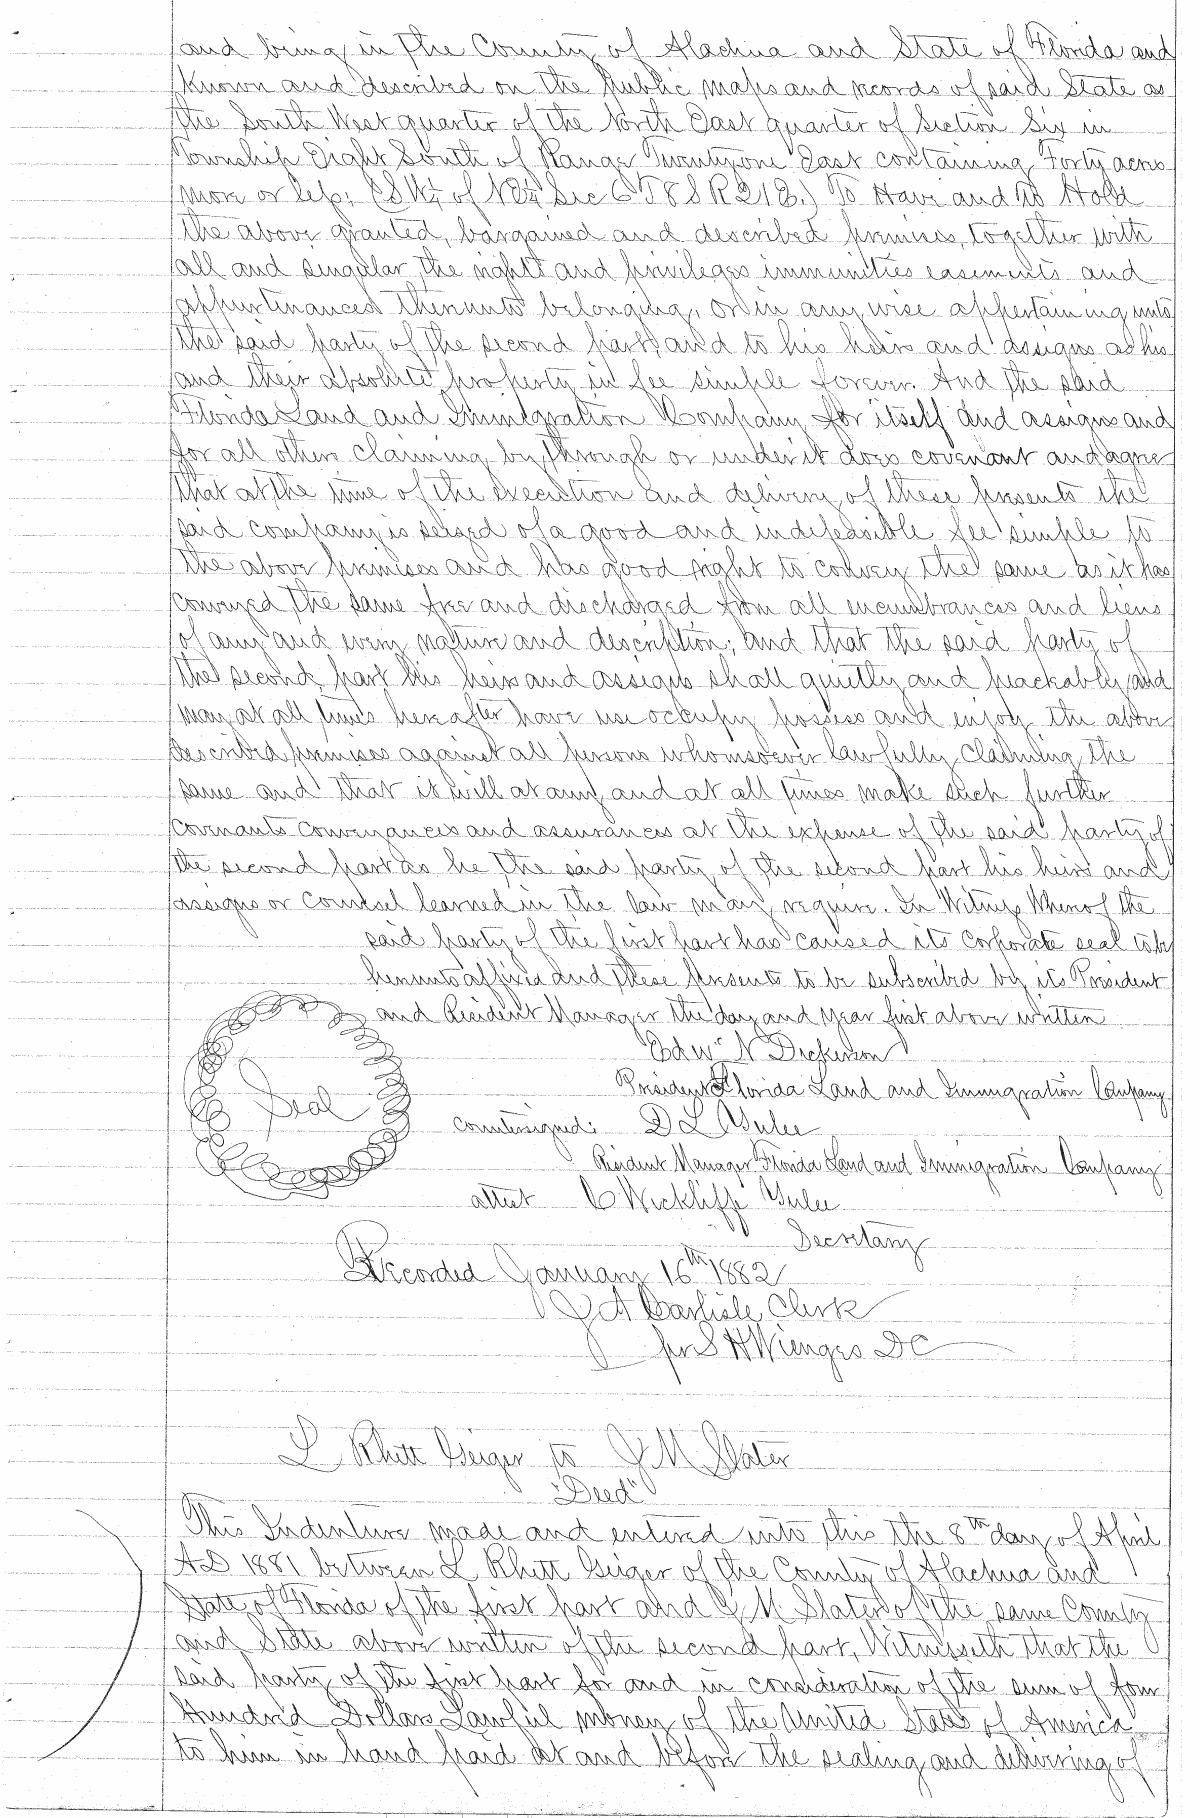 and being in the County of Alachua and State of Florida and
known and described on the public maps and records of said State as
the South West quarter of the North East quarter of Section Six in
Township Eight South of Range Twenty one East containing Forty acres
more or less; (SW¼ of NE¼ Sec 6 T8 S R21E.) To Have and To Hold
the above granted, bargained and described premises, together with
all and singular the rights and privileges immunities easements and
appurtinances thereunto belonging, or in any wise appertaining unto
the said party of the second part, and to his heirs and assigns as his
and their absolute property in fee simple forever. And the said
Florida Land and Immigration Company for itself and assigns and
for all others claiming by, through or under it does covenant and agree
that at the time of the execution and delivery of these presents the
said company is seized of a good and indefeasible fee simple to
the above premises and has good right to convey the same as it has
conveyed the same free and discharged from all incumbrances and liens
of any and every nature and description; and that the said party of
the second part his heirs and assigns shall quietly and peackably and
may at all times hereafter have use occupy possess and enjoy the above
described premises against all persons whomsoever lawfully claiming the
same and that it will at any and at all times make such further
covenants conveyances and assurances at the expense of the said party of
the second part as he the said party of the second part his heirs and
assigns or counsel learned in the law may require. In Witness Whereof the
said party of the first part has caused its corporate seal to be
hereunto affixed and these presents to be subscribed by its President
and Resident Manager the day and year first above written
Edwd N Dickerson
President Florida Land and Immigration Company
Seal
countersigned: D L Yulee
Resident Manager Florida Land and Immigration Company
attest C Wickliffe Yulee
Secretary
Recorded January 16th 1882
J A Carlisle Clerk
per S H Wienges DC
L Rhett Geiger to J M Slater
"Deed"
This Indenture made and entered into this the 8th day of April
AD 1881 between L Rhett Geiger of the County of Alachua and
State of Florida of the first part and J M Slater of the same County
and State above written of the second part, Witnesseth that the
said party of the first part for and in consideration of the sum of four
Hundred Dollars Lawful money of the United States of America
to him in hand paid at and before the sealing and delivering of